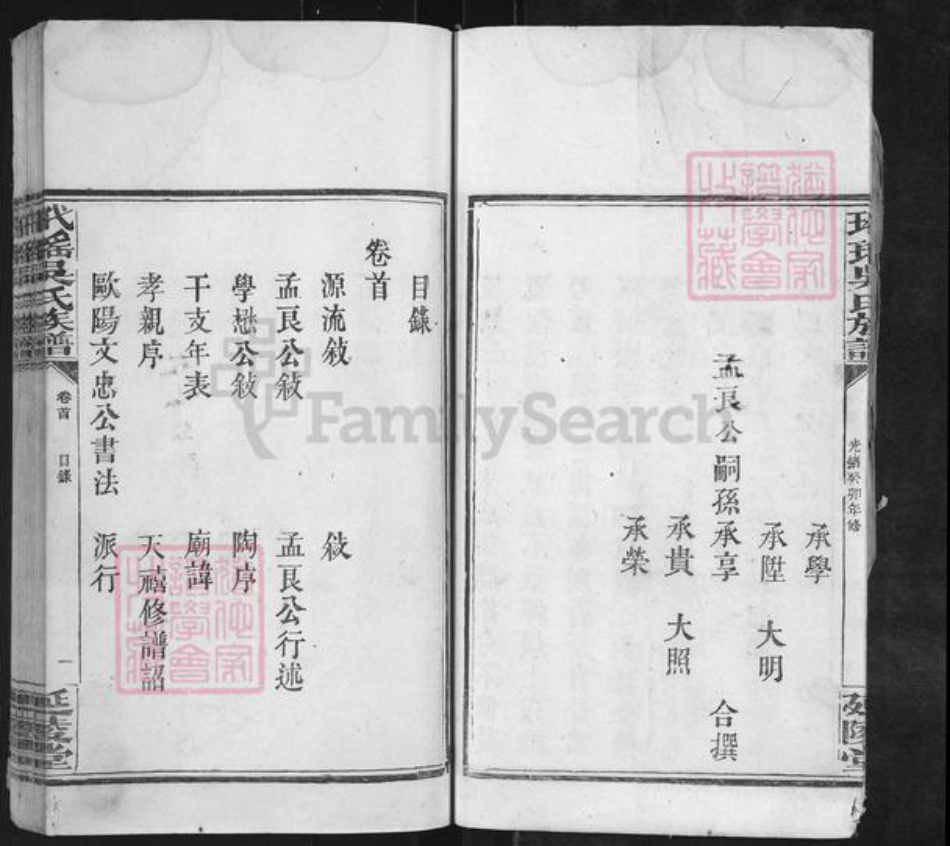 吳氏族譜
光緒癸卯年修
承學
承陞 大明
孟良公嗣孫承享 合撰
承貴 大照
承榮
目錄
卷首
源流敍 敍
孟良公敍 孟良公行述
學懋公敍 陶序
干支年表 廟諱
孝親序 天禧修譜詔
歐陽文忠公書法 派行
吳氏族譜
卷首 目錄 一
延陵堂
FamilySearch
譜學會